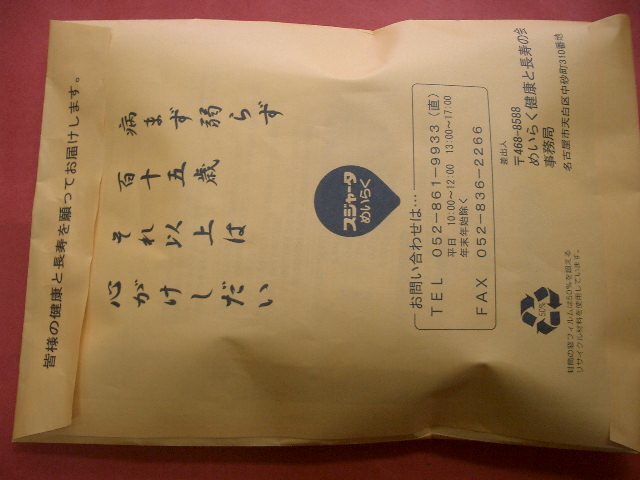 皆様の健康と長寿を願ってお届けします。
病まず弱らず
百十五歳
それ以上は
心がけしだい
スジャータ
めいらく
お問い合わせは…
TEL 052-861-9933(直)
平日 10:00〜12:00 13:00〜17:00
年末年始除く
FAX 052-836-2266
差出人
〒468-8588
めいらく健康と長寿の会
事務局
名古屋市天白区中砂町310番地
50%
封筒の窓フィルムは50%を超える
リサイクル材料を使用しています。